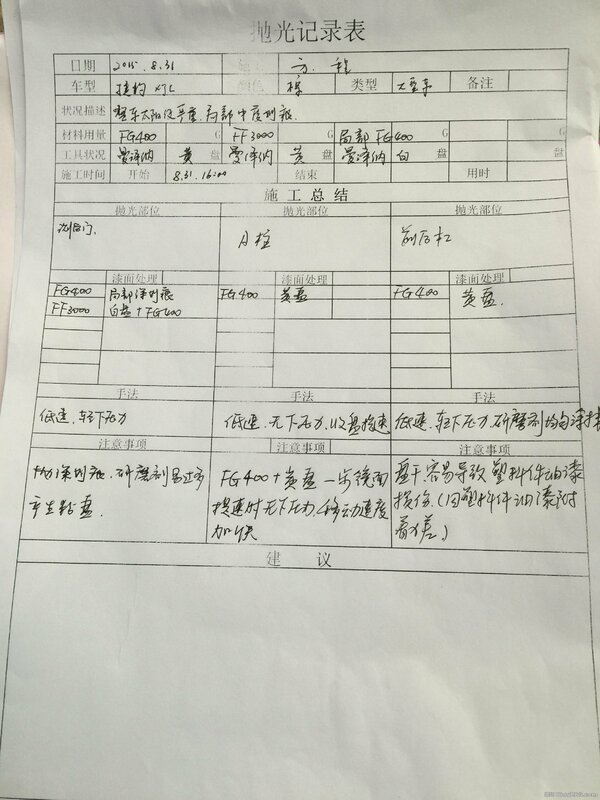 抛光记录表
日期 2015.8.31 方程
车型 捷豹 XJL 颜色 棕 类型 大型车 备注
状况描述 整车太阳纹严重,局部中度划痕
材料用量 FG400 G FF3000 G 局部 FG400 G
工具状况 曼泽纳 黄 盘 曼泽纳 黄 盘 曼泽纳 白 盘
施工时间 开始 8.31.16:00 结束 用时
施工总结
抛光部位 抛光部位 抛光部位
A柱 前后杠
漆面处理 漆面处理 漆面处理
FG400 局部深划痕 FG400 黄盘 FG400 黄盘.
FF3000 白盘+FG400
手法 手法 手法
低速.轻下压力 低速.无下压力.收盘提速 低速.轻下压力.研磨剂均匀
注意事项 注意事项 注意事项
深划痕.研磨剂易过多 FG400+黄盘一步镜面 盘干容易导致塑料件油漆
产生粘盘. 提速时无下压力.移动速度 损伤.(因塑料件油漆附
加快 着力差)
建议